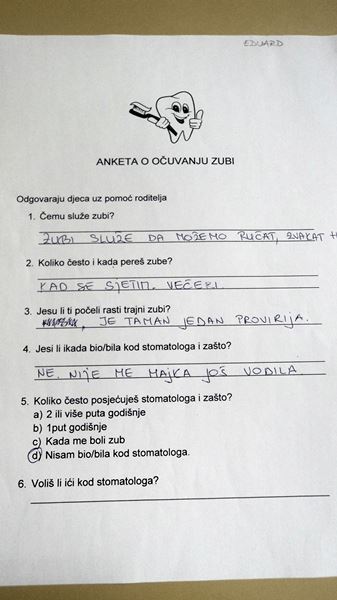 EDUARD
ANKETA O OČUVANJU ZUBI
Odgovaraju djeca uz pomoć roditelja
1. Čemu služe zubi?
ZUBI SLUŽE DA MOŽEMO RUČAT, ŽVAKAT
2. Koliko često i kada pereš zube?
KAD SE SJETIM. VEČERI.
3. Jesu li ti počeli rasti trajni zubi?
, JE TAMAN JEDAN PROVIRIJA.
4. Jesi li ikada bio/bila kod stomatologa i zašto?
NE. NIJE ME MAJKA JOŠ VODILA
5. Koliko često posjećuješ stomatologa i zašto?
a) 2 ili više puta godišnje
b) 1put godišnje
c) Kada me boli zub
d) Nisam bio/bila kod stomatologa.
6. Voliš li ići kod stomatologa?